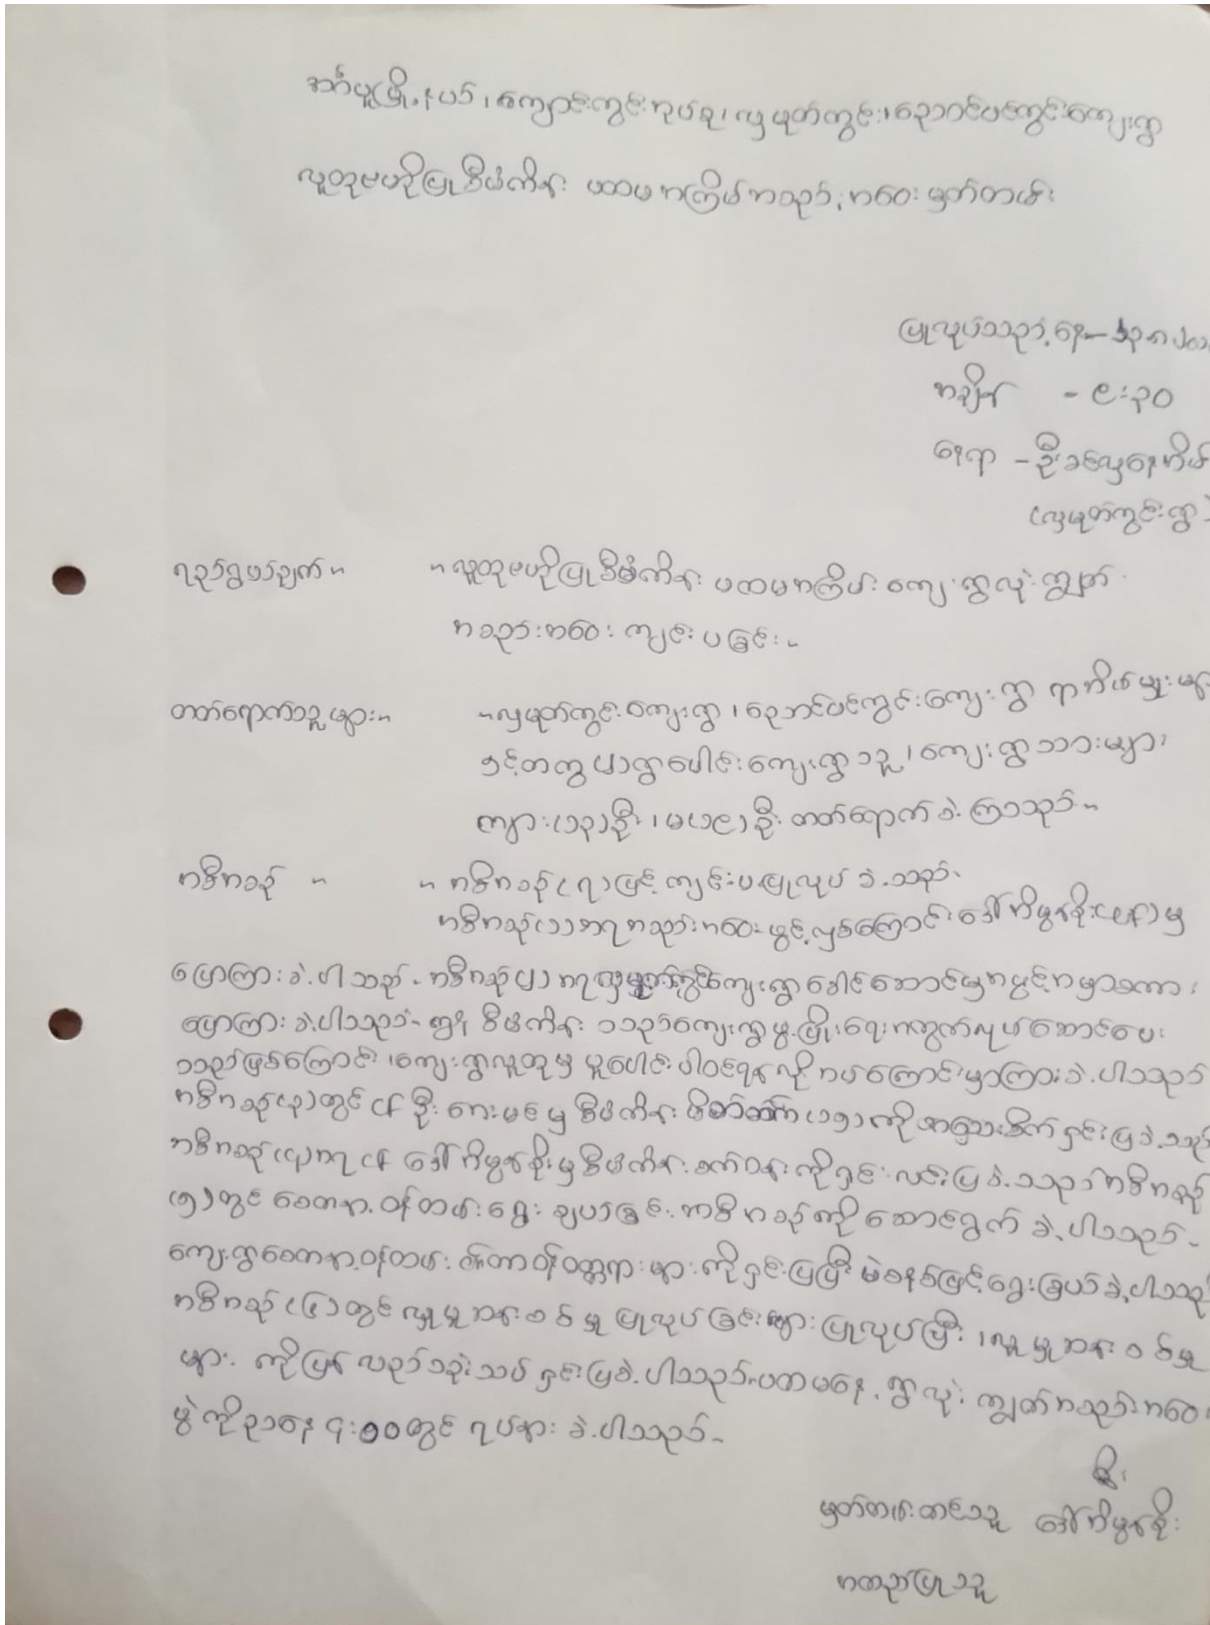 အင်္ဂပူမြို့နယ်၊ ကျောင်းကွင်းအုပ်စု၊ လှမုတ်ကွင်း၊ ညောင်ပင်ကွင်းကျေးရွာ
လူထုဗဟိုပြုစီမံကိန်း ပထမအကြိမ်အစည်းအဝေး မှတ်တမ်း
ပြုလုပ်သည့်နေ့ –
အချိန် - ၉:၃၀
နေရာ – ဦးခင်လှနေအိမ်
(လှမုတ်ကွင်းရွာ)
ရည်ရွယ်ချက် ။ ။ လူထုဗဟိုပြုစီမံကိန်း ပထမအကြိမ် ကျေးရွာလုံးကျွတ်
အစည်းအဝေး ကျင်းပခြင်း။
တက်ရောက်သူများ။ ။ လှမုတ်ကွင်းကျေးရွာ၊ ညောင်ပင်ကွင်းကျေးရွာ ရာအိမ်မှူးများ
နှင့်တကွ ရွာပေါင်းကျေးရွာသူ၊ ကျေးရွာသားများ
ကျား(၁၃)ဦး၊ မ(၁၉)ဦး တက်ရောက်ခဲ့ကြသည်။
အစီအစဉ် ။ ။ အစီအစဉ်(၇)ဖြင့် ကျင်းပပြုလုပ်ခဲ့သည်။
အစီအစဉ်(၁)အရ အစည်းအဝေးဖွင့်လှစ်ကြောင်း ဒေါ်အိမွန်စိုး(CF)မှ
ပြောကြားခဲ့ပါသည်။ အစီအစဉ်(၂)အရ လှမုတ်ကွင်းကျေးရွာခေါင်းဆောင်မှအဖွင့်အမှာစကား
ပြောကြားခဲ့ပါသည်။ ဤ စီမံကိန်းသည်ကျေးရွာဖွံ့ဖြိုးရေးအတွက်လုပ်ဆောင်ပေး
သည်ဖြစ်ကြောင်း၊ ကျေးရွာလူထုမှ ပူးပေါင်းပါဝင်ရန်လိုအပ်ကြောင်းမှာကြားခဲ့ပါသည်
အစီအစဉ်(၃)တွင် CF ဦး မှ စီမံကိန်း (၁၅)ကို အသေးစိတ်ရှင်းပြခဲ့သည်
အစီအစဉ်(၄)အရ CF ဒေါ်အိမွန်စိုးမှ စီမံကိန်း စက်ဝန်းကိုရှင်းလင်းပြခဲ့သည် အစီအစဉ်
(၅)တွင် စေတနာ့ဝန်ထမ်းရွေးချယ်ခြင်း အစီအစဉ်ကို ဆောင်ရွက်ခဲ့ပါသည်။
ကျေးရွာစေတနာ့ဝန်ထမ်း တာဝန်ဝတ္တရားများကိုရှင်းပြပြီး မဲစနစ်ဖြင့်ရွေးခြယ်ခဲ့ပါသည်
အစီအစဉ်(၆)တွင် လူမှုဆန်းစစ်မှု ပြုလုပ်ခြင်းများ ပြုလုပ်ပြီး၊ လူမှုဆန်းစစ်မှု
များကိုပြန်လည်သုံးသပ်ရှင်းပြခဲ့ပါသည်။ပထမနေ့ ရွာလုံးကျွတ်အစည်းအဝေး
ပွဲကိုညနေ ၄:၀၀တွင် ရပ်နားခဲ့ပါသည်။
မှတ်တမ်းတင်သူ ဒေါ်အိမွန်စိုး
အတည်ပြုသူ